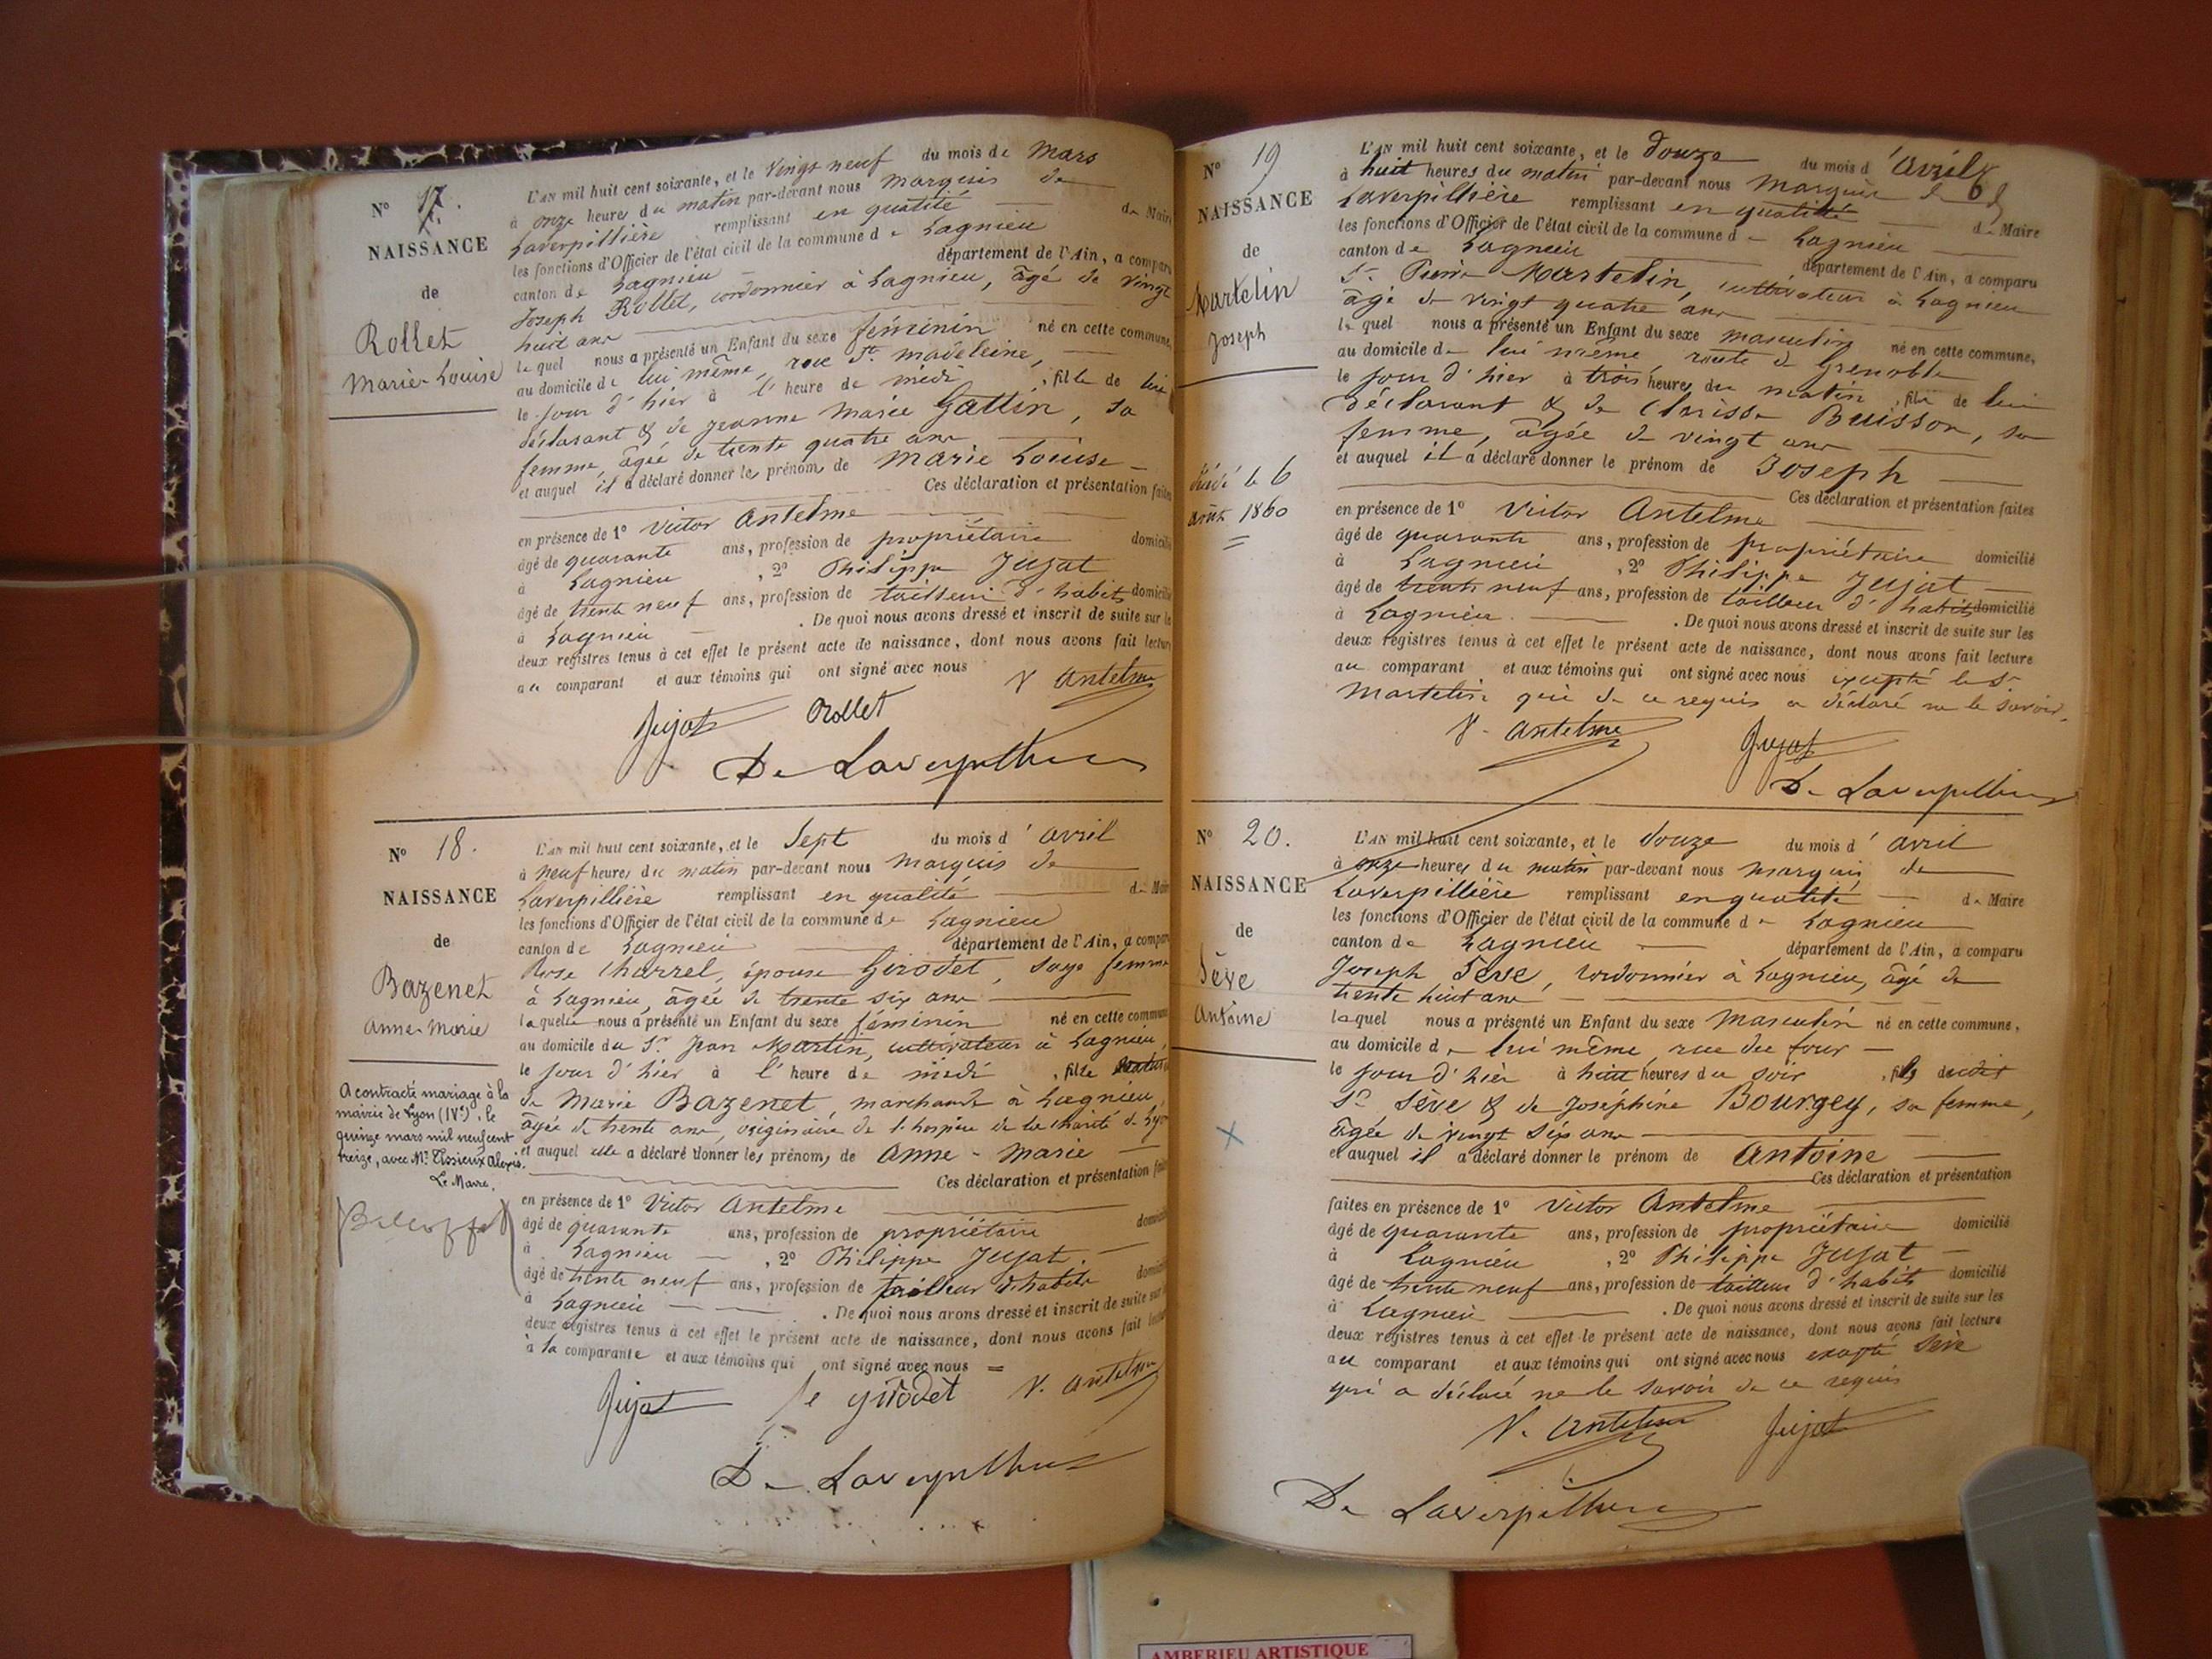 N° 17.
NAISSANCE
de
Rollet
Marie-Louise
L'AN mil huit cent soixante, et le vingt neuf du mois de Mars
à onze heures du matin par-devant nous Marquis de
Laverpillière remplissant en qualité de Maire
les fonctions d'Officier de l'état civil de la commune de Lagnieu
canton de Lagnieu département de l'Ain, a comparu
Joseph Rollet, cordonnier à Lagnieu, âgé de vingt
huit ans
lequel nous a présenté un Enfant du sexe féminin né en cette commune,
au domicile de lui même, rue Ste madeleine,
le jour d'hier à l'heure de midi, fille de lui
déclarant & de Jeanne Marie Gattin, sa
femme, âgée de trente quatre ans
et auquel il a déclaré donner les prénoms de Marie Louise
Ces déclaration et présentation faites
en présence de 1° Victor Antelme
âgé de quarante ans, profession de propriétaire domicilié
à Lagnieu, 2° Philippe Jujat
âgé de trente neuf ans, profession de tailleur d'habits domicilié
à Lagnieu. De quoi nous avons dressé et inscrit de suite sur les
deux registres tenus à cet effet le présent acte de naissance, dont nous avons fait lecture
au comparant et aux témoins qui ont signé avec nous
V Antelme
Jujat Rollet
De Laverpillière
N° 18.
NAISSANCE
de
Bazenet
Anne-Marie
A contracté mariage à la
mairie de Lyon (IVe), le
quinze mars mil neuf cent
treize, avec Mr Tissieux Alexis.
Le Maire,
L'AN mil huit cent soixante, et le Sept du mois d'avril
à neuf heures du matin par-devant nous Marquis de
Laverpillière remplissant en qualité de Maire
les fonctions d'Officier de l'état civil de la commune de Lagnieu
canton de Lagnieu département de l'Ain, a comparu
Rose Charrel, épouse Girodet, sage femme
à Lagnieu, âgée de trente six ans
laquelle nous a présenté un Enfant du sexe féminin né en cette commune
au domicile du Sr Jean Martin, cultivateur à Lagnieu,
le jour d'hier à l'heure de midi, fille
de Marie Bazenet, marchande à Lagnieu,
âgée de trente ans, originaire de l'hospice de la charité de Lyon
et auquel elle a déclaré donner les prénoms de Anne-Marie
Ces déclaration et présentation faites
en présence de 1° Victor Antelme
âgé de quarante ans, profession de propriétaire domicilié
à Lagnieu, 2° Philippe Jujat.
âgé de trente neuf ans, profession de tailleur d'habits domicilié
à Lagnieu. De quoi nous avons dressé et inscrit de suite sur les
deux registres tenus à cet effet le présent acte de naissance, dont nous avons fait lecture
à la comparante et aux témoins qui ont signé avec nous =
Jujat fe girodet V. Antelme
De Laverpillière
N° 19
NAISSANCE
de
Martelin
Joseph
décédé le 6
août 1860
L'AN mil huit cent soixante, et le douze du mois d'avril
à huit heures du matin par-devant nous Marquis de
Laverpillière remplissant en qualité de Maire
les fonctions d'Officier de l'état civil de la commune de Lagnieu
canton de Lagnieu département de l'Ain, a comparu
Sr Pierre Martelin, cultivateur à Lagnieu
âgé de vingt quatre ans
lequel nous a présenté un Enfant du sexe masculin né en cette commune,
au domicile de lui même route de Grenoble
le jour d'hier à trois heures du matin, fils de lui
déclarant & de Clarisse Buisson, sa
femme, âgée de vingt ans
et auquel il a déclaré donner le prénom de Joseph
Ces déclaration et présentation faites
en présence de 1° Victor Antelme
âgé de quarante ans, profession de propriétaire domicilié
à Lagnieu, 2° Philippe Jujat
âgé de trente neuf ans, profession de tailleur d'habits domicilié
à Lagnieu. De quoi nous avons dressé et inscrit de suite sur les
deux registres tenus à cet effet le présent acte de naissance, dont nous avons fait lecture
au comparant et aux témoins qui ont signé avec nous excepté le Sr
Martelin qui de ce requis a déclaré ne le savoir.
V. Antelme Jujat
De Laverpillière
N° 20.
NAISSANCE
de
Sève
Antoine
L'AN mil huit cent soixante, et le douze du mois d'avril
à onze heures du matin par-devant nous Marquis de
Laverpillière remplissant en qualité de Maire
les fonctions d'Officier de l'état civil de la commune de Lagnieu
canton de Lagnieu département de l'Ain, a comparu
Joseph Sève, cordonnier à Lagnieu, âgé de
trente huit ans
lequel nous a présenté un Enfant du sexe Masculin né en cette commune,
au domicile de lui même, rue du four
le jour d'hier à huit heures du soir, fils dudit
Sr Sève & de Joséphine Bourgey, sa femme,
âgée de vingt six ans
et auquel il a déclaré donner le prénom de Antoine
Ces déclaration et présentation
faites en présence de 1° Victor Antelme
âgé de quarante ans, profession de propriétaire domicilié
à Lagnieu, 2° Philippe Jujat
âgé de trente neuf ans, profession de tailleur d'habits domicilié
à Lagnieu. De quoi nous avons dressé et inscrit de suite sur les
deux registres tenus à cet effet le présent acte de naissance, dont nous avons fait lecture
au comparant et aux témoins qui ont signé avec nous excepté Sève
qui a déclaré ne le savoir de ce requis
V. Antelme Jujat
De Laverpillière
AMBERIEU ARTISTIQUE